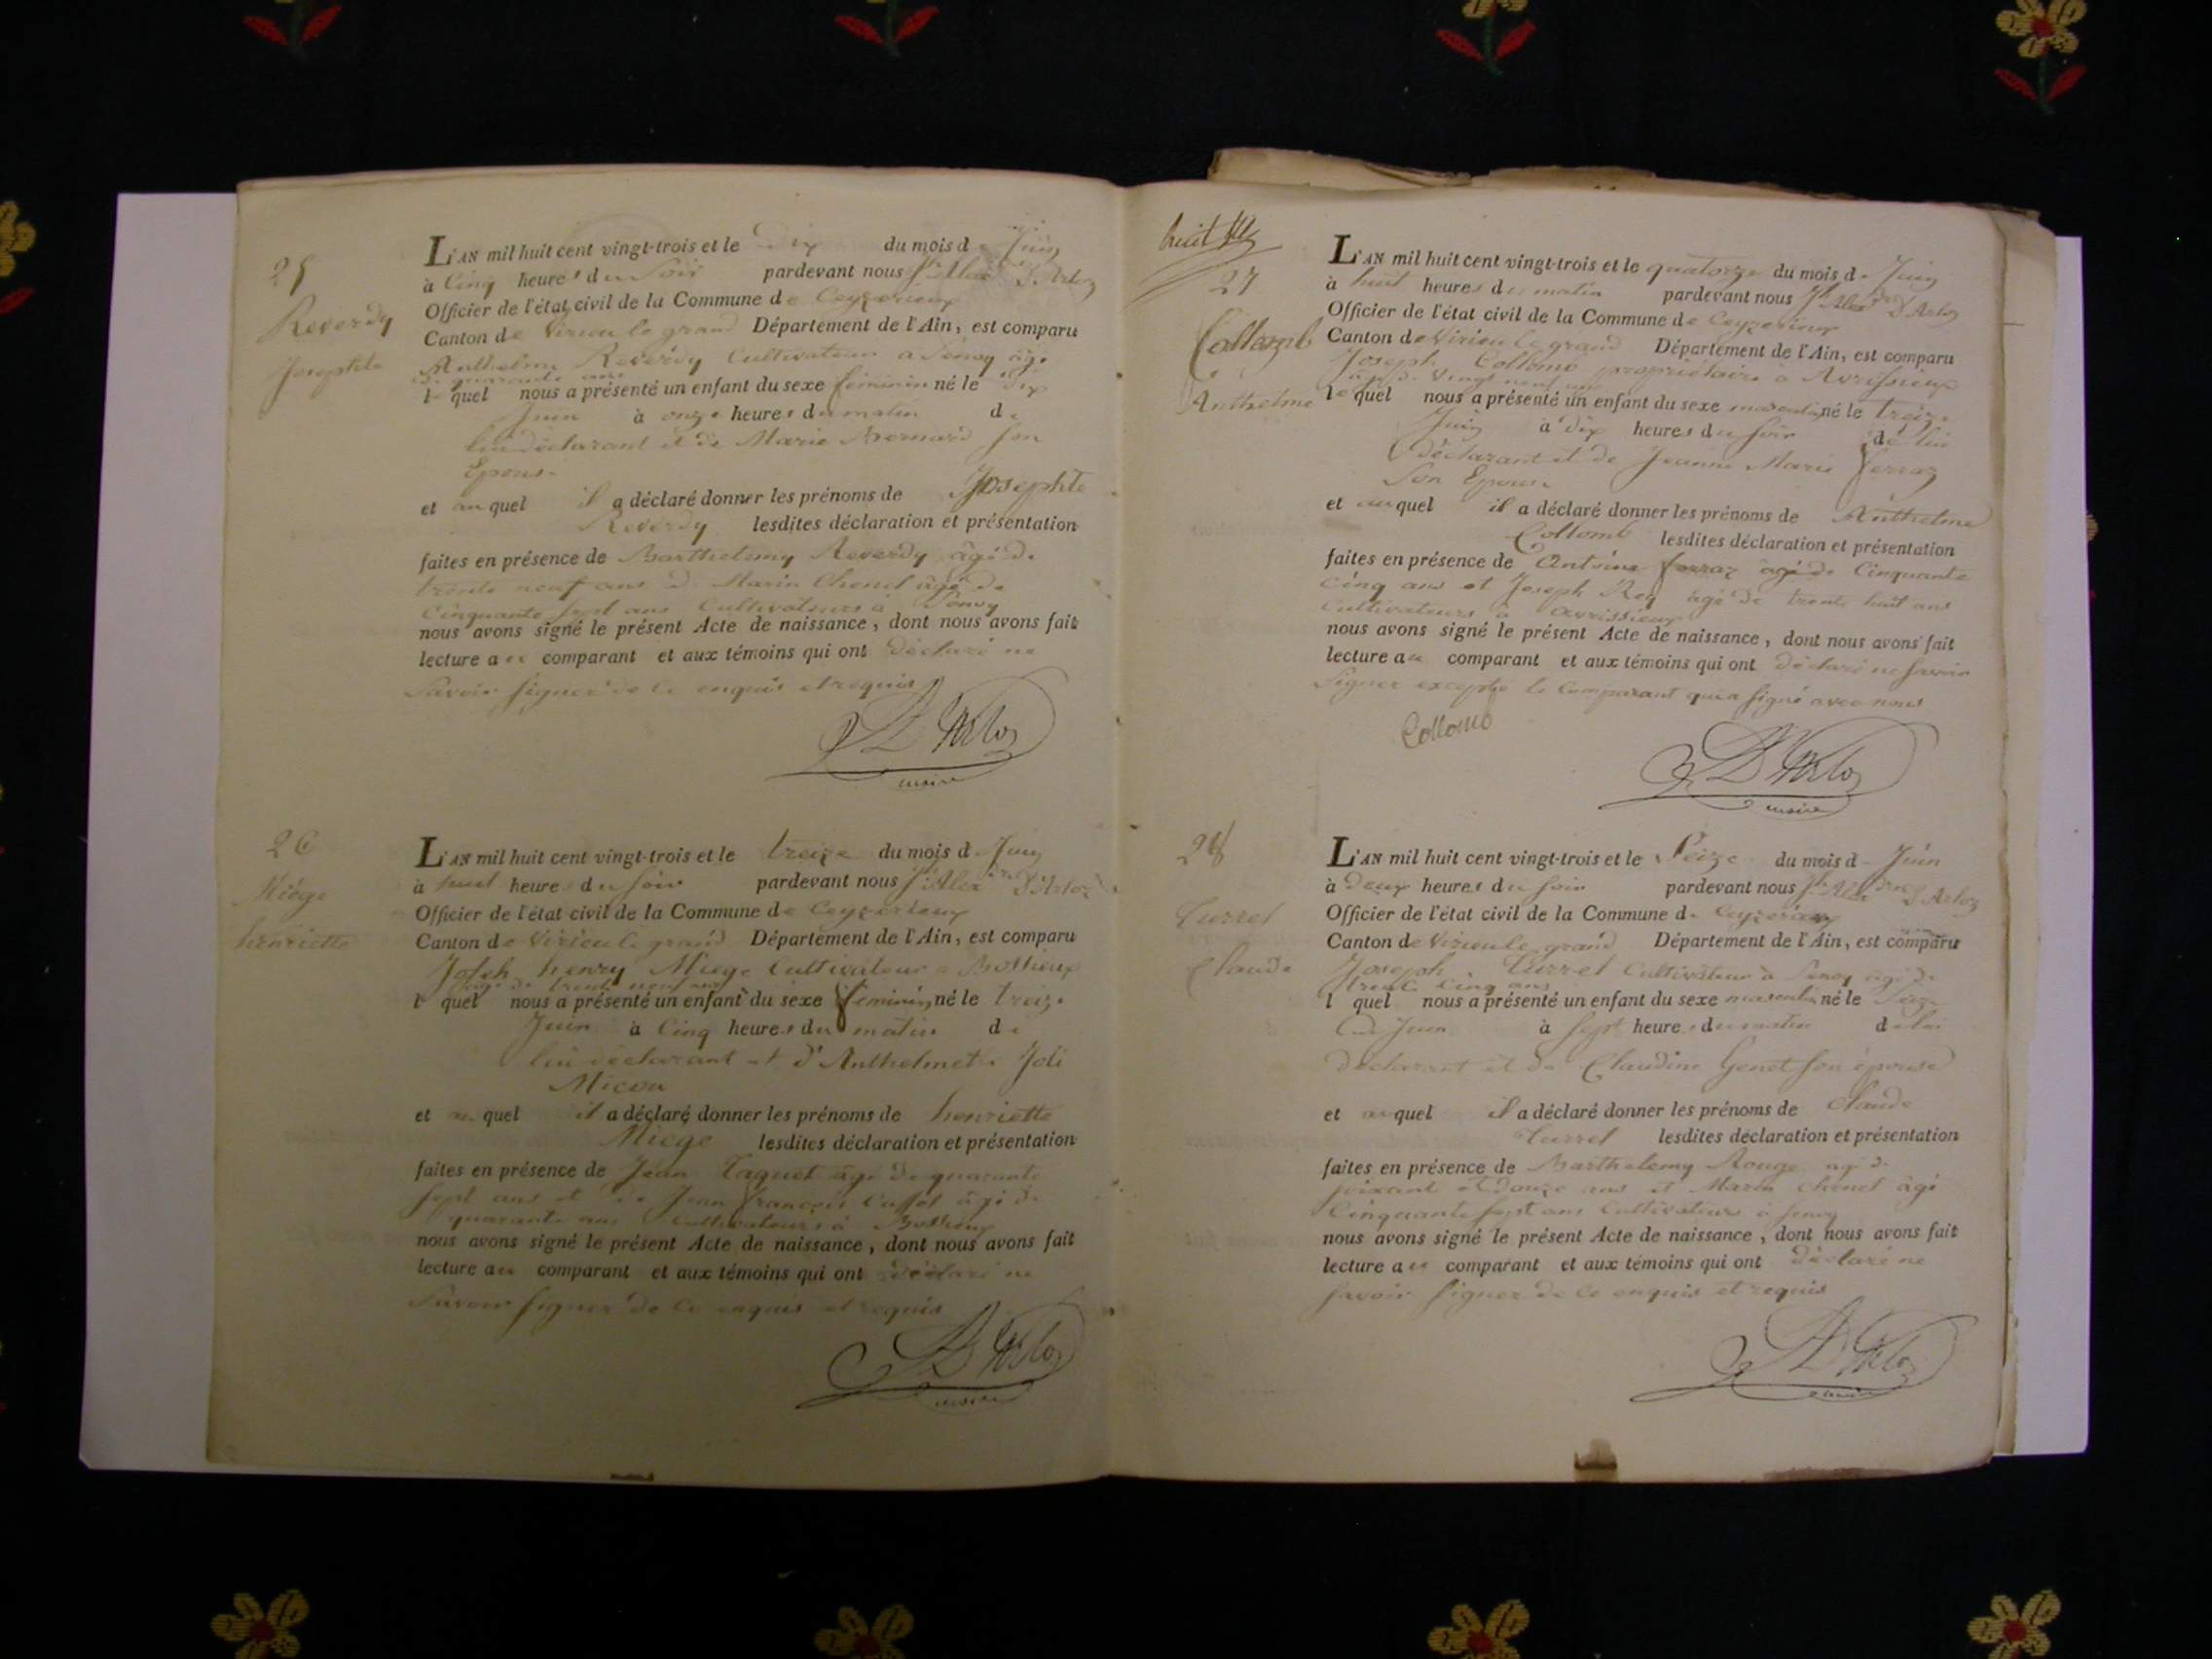 25
Reverdy
Josephte
L'AN mil huit cent vingt-trois et le Dix du mois de Juin
à Cinq heures du Soir pardevant nous Jh Alexdre D'Arloz
Officier de l'état civil de la Commune de Ceyzerieux
Canton de Virieu le grand Département de l'Ain, est comparu
Anthelme Reverdy Cultivateur à Senoy âgé
de quarante ans
lequel nous a présenté un enfant du sexe féminin né le dix
Juin à onze heures du matin de
lui déclarant et de Marie Bernard son
Epouse
et auquel il a déclaré donner les prénoms de Josephte
Reverdy lesdites déclaration et présentation
faites en présence de Barthelemy Reverdy âgé de
trente neuf ans & Marin Chenel âgé de
Cinquante sept ans Cultivateurs à Senoy
nous avons signé le présent Acte de naissance, dont nous avons fait
lecture au comparant et aux témoins qui ont déclaré ne
Savoir signer de ce enquis et requis
D'Arloz
maire
26
Miège
henriette
L'AN mil huit cent vingt-trois et le treize du mois de Juin
à huit heures du soir pardevant nous Jh Alexdre D'Arloz
Officier de l'état civil de la Commune de Ceyzerieux
Canton de Virieu le grand Département de l'Ain, est comparu
Joseph henry Miege Cultivateur à
âgé de trente neuf ans
lequel nous a présenté un enfant du sexe féminin né le treize
Juin à Cinq heures du matin de
lui déclarant et d'Anthelmette Joli
Micou
et auquel il a déclaré donner les prénoms de henriette
Miege lesdites déclaration et présentation
faites en présence de Jean âgé de quarante
sept ans et de Jean françois âgé de
quarante ans Cultivateurs à
nous avons signé le présent Acte de naissance, dont nous avons fait
lecture au comparant et aux témoins qui ont déclaré ne
Savoir signer de ce enquis et requis
D'Arloz
maire
huit
27
Collomb
Anthelme
L'AN mil huit cent vingt-trois et le quatorze du mois de Juin
à huit heures du matin pardevant nous Jh Alexdre D'Arloz
Officier de l'état civil de la Commune de Ceyzerieux
Canton de Virieu le grand Département de l'Ain, est comparu
Joseph Collomb propriétaire à Avrissieux
âgé de vingt neuf ans
lequel nous a présenté un enfant du sexe masculin né le treize
Juin à dix heures du soir de lui
déclarant et de Jeanne Marie ferraz
Son Epouse
et auquel il a déclaré donner les prénoms de Anthelme
Collomb lesdites déclaration et présentation
faites en présence de Antoine ferraz âgé de Cinquante
Cinq ans et Joseph Rey âgé de trente huit ans
Cultivateurs à avrissieux
nous avons signé le présent Acte de naissance, dont nous avons fait
lecture au comparant et aux témoins qui ont déclaré ne savoir
Signer excepté le Comparant qui a signé avec nous
Collomb
D'Arloz
maire
28
Curret
Claude
L'AN mil huit cent vingt-trois et le Seize du mois de Juin
à deux heures du soir pardevant nous Jh Alexdre D'Arloz
Officier de l'état civil de la Commune de Ceyzerieux
Canton de Virieu le grand Département de l'Ain, est comparu
Joseph Curret Cultivateur à Senoy âgé de
trente Cinq ans
lequel nous a présenté un enfant du sexe masculin né le Seize
Juin à sept heures du matin de lui
déclarant et de Claudine Genet son épouse
et auquel il a déclaré donner les prénoms de Claude
Curret lesdites déclaration et présentation
faites en présence de Barthelemy Rouge agé de
soixante et douze ans et Marin Chenel âgé
Cinquante sept ans Cultivateurs à Senoy
nous avons signé le présent Acte de naissance, dont nous avons fait
lecture au comparant et aux témoins qui ont déclaré ne
savoir signer de ce enquis et requis
D'Arloz
maire